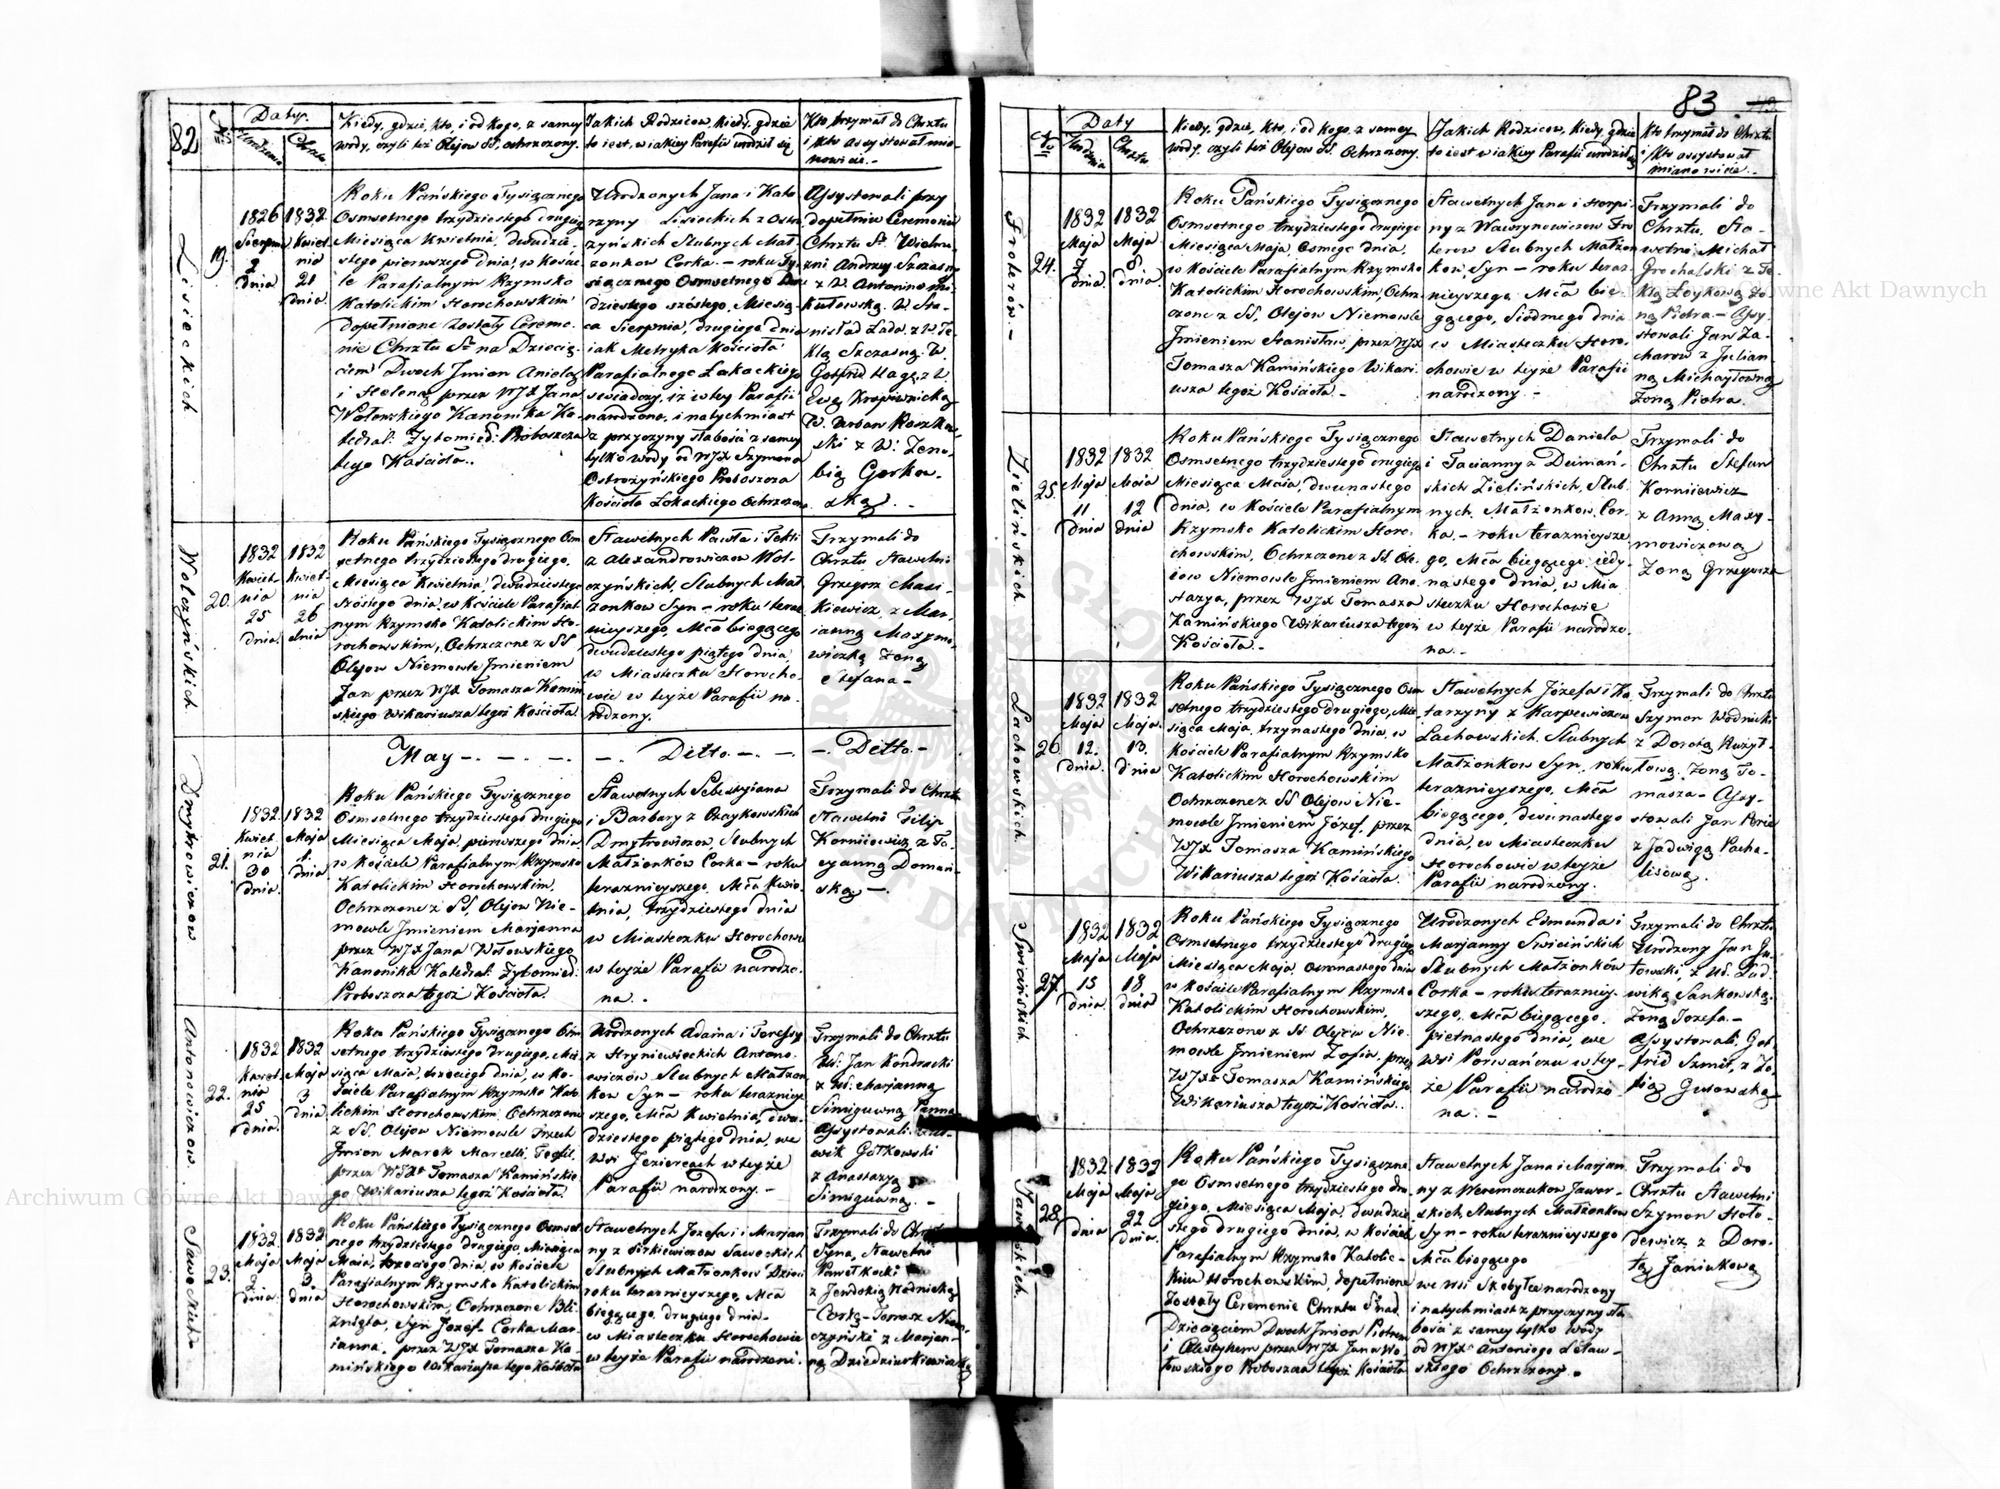 82
Nr
Daty.
Urodzenia
Chrztu
Kiedy, gdzie, kto, i od kogo, z samey
wody, czyli też Olejow SS. ochrzczony.
Jakich Rodzicow, kiedy, gdzie
to iest, w iakiey Parafii urodził się
Kto trzymał do Chrztu
i kto assystował mia-
nowicie.-
Lisieckich
19.
1826
Sierpnia
2
dnia
1832
Kwiet-
nia
21
dnia
Roku Pańskiego Tysiącznego
Osmsetnego trzydziestego drugiego
Miesiąca Kwietnia, dwudzie-
stego pierwszego dnia, w Koście-
le Parafialnym Rzymsko
Katolickim Horochowskim
dopełnione zostały Ceremo-
nie Chrztu S° na Dziecią-
ciem Dwoch Jmion Anielą
i Heleną przez WJX Jana
Kanonika Ka-
tedral: Zytomierd: Proboszcza
tego Kościoła..
Urodzonych Jana i Kata-
rzyny Lisieckich z Ostro-
zyńskich Slubnych Mał-
zonkow Corka. - roku Ty-
siącznego Osmsetnego Dwu-
dziestego szóstego, Miesią-
ca Sierpnia, drugiego dnia
iak Metryka Kościoła
Parafialnego Łokackiego
swiadczy, iż w tey Parafii
narodzona, i natychmiast
z przyczyny słabości z samey
tylko wody od WJX Szymona
Ostrożyńskiego Proboszcza
Kościoła Łokackiego Ochrzczona
Assystowali przy
dopełnieniu Ceremonii
Chrztu St. Wielmo-
żni Andrzey Szczasny
z W. Antoniną Mi-
kułowską. W. Sta-
nisław Zada. z W. Te-
klą Szczasną. W.
Gotfrid Hagę z W.
Ewą Kropiwnicką
W. Urban Roszkow-
ski z W. Zeno-
bią Gorkow-
ską. -
Wołczyńskich
20.
1832
Kwiet-
nia
25
dnia.
1832
Kwiet-
nia
26
dnia
Roku Pańskiego Tysiącznego Osm-
setnego trzydziestego drugiego,
Miesiąca Kwietnia, dwudziestego
szóstego dnia, w Kościele Parafial-
nym Rzymsko Katolickim Ho-
rochowskim, Ochrzczone z SS
Olejow Niemowle Jmieniem
Jan przez WJX Tomasza Kamin-
skiego Wikariusza tegoż Kościoła
Sławetnych Pawła i Tekli
z Alexandrowiczow Woł-
czyńskich, Slubnych Mał-
zonkow Syn - roku teraz
nieyszego, Mca biegącego
dwudziestego piątego dnia
w Miasteczku Horocho-
wie w teyże Parafii na-
rodzony.
Trzymali do
Chrztu Sławetni
Grzegorz Masi-
kiewicz, z Mar-
ianną Maxymo-
wiczką Zoną
Stefana -
May -. - . - . -
-. Ditto. - . -
-. Ditto. -
Dmytrowiczow
21.
1832
Kwiet-
nia
30
dnia.
1832
Maja
1.
dnia
Roku Pańskiego Tysiącznego
Osmsetnego trzydziestego drugiego
Miesiąca Maja, pierwszego dnia
w Kościele Parafialnym Rzymsko
Katolickim Horochowskim,
Ochrzczone z SS. Olejow Nie-
mowle Jmieniem Marjanna
przez WJX Jana
Kanonika Katedral: Zytomierd:
Proboszcza tegoż Kościoła.
Sławetnych Sebestyiana
i Barbary z Czaykowskich
Dmytrowiczow, Slubnych
Małzonków Corka - roku
teraznieyszego, Mca Kwie-
tnia, trzydziestego dnia
w Miasteczku Horochowie
w teyże Parafii narodzo-
na. -
Trzymali do Chrztu
Sławetni Filip
Korniiewicz z Ta-
cyanną Doman-
ską -.
Antonowiczow.
22.
1832
Kwiet-
nia
25
dnia.
1832
Maja
3
dnia
Roku Pańskiego Tysiącznego Osm-
setnego trzydziestego drugiego, Mie-
siąca Maia, trzeciego dnia, w Ko-
ściele Parafialnym Rzymsko Kato-
lickim Horochowskim, Ochrzczone
z SS. Olejow Niemowle Trzech
Jmion Marek Marcelli Teofil,
przez WJX° Tomasza Kamińskie-
go Wikariusza tegoż Kościoła.
Urodzonych Adama i Teressy
z Hryniewieckich Antono-
wiczów, Slubnych Małzon-
kow Syn - roku terazniey-
szego, Mca Kwietnia, dwu-
dziestego piątego dnia, we
Wsi Jeziercach w teyże
Parafii narodzony. -
Trzymali do Chrztu
W. Jan Kondracki
z W. Marjanną
Simiguwną Panną
Assystowali
wik Gołkowski
z Anastazyą
Simiguwną. -
Saweckich
23.
1832
Maja
2
dnia.
1832
Maja
3.
dnia
Roku Pańskiego Tysiącznego Osmset-
nego trzydziestego drugiego, Miesiąca
Maia, trzeciego dnia, w Kościele
Parafialnym Rzymsko Katolickim
Horochowskim, Ochrzczone Bli-
źnięta, Syn Jozef - Corka Mar-
ianna, przez WJX Tomasza Ka-
mińskiego Wikariusza tego Kościoła
Sławetnych Jozefa i Marjan-
ny z Sirkiewiczow Saweckich
Slubnych Małzonkow Dzieci
roku teraznieyszego, Mca
biegącego, drugiego dnia -
w Miasteczku Horochowie
w teyże Parafii narodzeni.
Trzymali do Chrztu
Syna, Sławetni
Paweł Kocki
z Jewdokią Wodnicką
- Corkę - Tomasz Niem-
czyński z Marjan-
ną Dziedziurkiewiczką
83
Nr
Daty
Urodzenia
Chrztu
Kiedy, gdzie, kto, i od kogo, z samey
wody, czyli też Olejow SS. Ochrzczony.
Jakich Rodzicow, Kiedy, gdzie
to iest w iakiey Parafii urodził się
Kto trzymał do Chrztu
i kto assystował
mianowicie.-
Froterów. -
24.
1832
Maja
7
dnia.
1832
Maja
8
dnia.
Roku Pańskiego Tysiącznego
Osmsetnego trzydziestego drugiego
Miesiąca Maja, Osmego dnia,
w Kościele Parafialnym Rzymsko
Katolickim Horochowskim, Ochrz-
czone z SS, Olejow Niemowle
Jmieniem Stanisław, przez WJX
Tomasza Kamińskiego Wikari-
usza tegoż Kościoła. -
Sławetnych Jana i Horpi-
ny z Wawrynowiczow Fro-
terow Slubnych Małzon-
kow, Syn - roku teraz-
nieyszego Mca bie-
gącego, Siódmego dnia
w Miasteczku Horo-
chowie w teyże Parafii
narodzony. -
Trzymali do
Chrztu, Sła-
wetni Michał
Grochalski z Te-
klą Łoykową Zo-
ną Piotra. - Assy-
stowali Jan Za-
charow z Julian-
ną Michayłowną
Zoną Piotra.
Zielińskich
25.
1832
Maja
11
dnia
1832
Maia
12
dnia
Roku Pańskiego Tysiącznego
Osmsetnego trzydziestego drugiego
Miesiąca Maia, dwunastego
dnia, w Kościele Parafialnym
Rzymsko Katolickim Horo-
chowskim, Ochrzczone z SS. Ole-
iow Niemowle Jmieniem Ana-
stazya, przez WJX Tomasza
Kamińskiego Wikariusza tegoż
Kościoła. -
Sławetnych Daniela
i Tacianny z Duimań-
skich Zielińskich, Slub-
nych, Małzonkow, Cor-
ka. - roku teraznieysze-
go, Mca biegącego iedy-
nastego dnia, w Mia-
steczku Horochowie
w teyże Parafii narodzo-
na. -
Trzymali do
Chrztu Stefan
Korniiewicz
z Anną Maxy-
mowiczową
Zoną Grzegorza
Lachowskich
26.
1832
Maja
12.
dnia.
1832
Maja.
13.
dnia
Roku Pańskiego Tysiącznego Osm-
setnego trzydziestego drugiego, Mie-
siąca Maja, trzynastego dnia, w
Kościele Parafialnym Rzymsko
Katolickim Horochowskim
Ochrzczone z SS Olejow Nie-
mowle Jmieniem Józef, przez
WJX Tomasza Kamińskiego
Wikariusza tegoż Kościoła.
Sławetnych Józefa i Ka-
tarzyny z Karpewiczow
Lachowskich, Slubnych
Małzonkow Syn, roku
teraznieyszego, Mca
biegącego, dwunastego
dnia, w Miasteczku
Horochowie w teyże
Parafii narodzony.
Trzymali do Chrztu
Szymon Wodnicki
z Dorotą
Zoną To-
masza - Assy-
stowali Jan
z Jadwigą Pacha-
lisową.
Swiecińskich
27.
1832
Maja
15
dnia
1832
Maja
18
dnia
Roku Pańskiego Tysiącznego
Osmsetnego trzydziestego drugiego
Miesiąca Maja, osmnastego dnia
w Kościele Parafialnym Rzymsko
Katolickim Horochowskim,
Ochrzczone z SS. Olejow Nie-
mowle Jmieniem Zofia, przez
WJX° Tomasza Kamińskiego
Wikariusza tegoż Kościoła..
Urodzonych Edmunda i
Marjanny Swiecińskich
Slubnych Małzonków
Corka - roku terazniey-
szego, Mca biegącego,
pietnastego dnia, we
wsi Porwańczu w tey-
że Parafii narodzo-
na. -
Trzymali do Chrztu
Urodzony Jan Gu-
towski, z Ud. Lud-
wiką Sankowską,
Zoną Jozefa. -
Assystowali, Got-
frid Szmit, z Zo-
fią Gusowską
Jaworskich.
28.
1832
Maja
dnia
1832
Maja
22
dnia.
Roku Pańskiego Tysiączne-
go Osmsetnego trzydziestego dru-
giego, Miesiąca Maja, dwudzie-
stego drugiego dnia, w Kościele
Parafialnym Rzymsko Katolic-
kim Horochowskim, dopełnione
Zostały Ceremonie Chrztu S° nad
Dziecięciem Dwoch Jmion Piotrem
i Celestynem przez WJX Jana Wo-
łowskiego Proboszcza tegoż Kościoła
Sławetnych Jana i Marjan-
ny z Weremczukow Jawor-
skich, Slubnych Małzonkow
Syn - roku teraznieyszego
Mca biegącego
we Wsi Skobyłce narodzony
i natychmiast z przyczyny sła-
bości z samey tylko Wody
od WJX Antoniego Letaw-
skiego Ochrzczony. -
Trzymali do
Chrztu Sławetni
Szymon Hoło-
dewicz, z Doro-
tą Janiukową
Archiwum Główne Akt Dawnych
Archiwum Główne Akt Dawnych